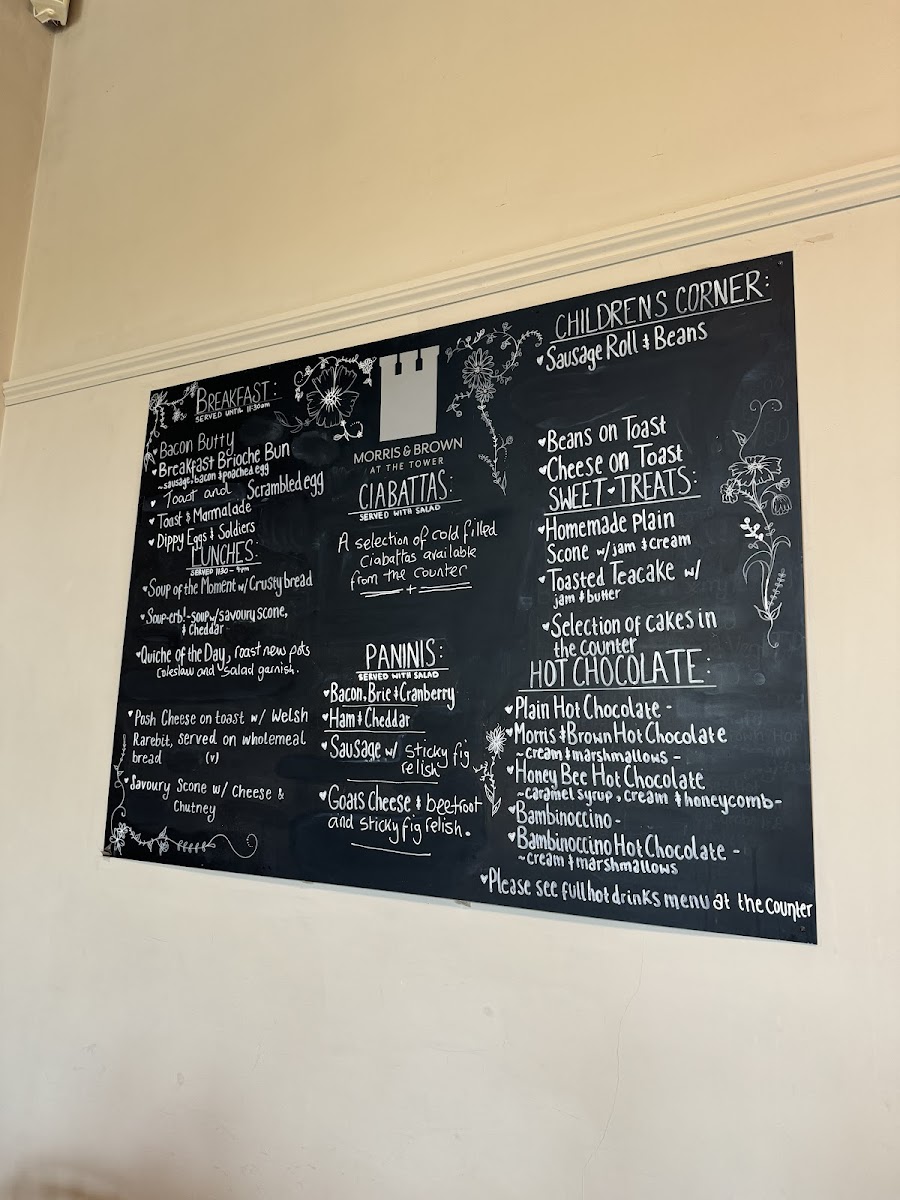 BREAKFAST:
SERVED UNTIL 11:30am
Bacon Butty
Breakfast Brioche Bun
~sausage, bacon & poached egg
Toast and Scrambled egg
Toast & Marmalade
Dippy Eggs & Soldiers
LUNCHES:
SERVED 11:30 - 4pm
Soup of the Moment w/ Crusty bread
Soup-erb! - soup w/ savoury scone,
& Cheddar
Quiche of the Day, roast new pots
coleslaw and salad garnish.
Posh Cheese on toast w/ Welsh
Rarebit, served on wholemeal
bread (v)
Savoury Scone w/ Cheese &
Chutney
MORRIS & BROWN
AT THE TOWER
CIABATTAS:
SERVED WITH SALAD
A selection of cold filled
Ciabattas available
from the counter
PANINIS:
SERVED WITH SALAD
Bacon, Brie & Cranberry
Ham & Cheddar
Sausage w/ sticky fig
relish
Goats Cheese & beetroot
and sticky fig relish.
CHILDRENS CORNER:
Sausage Roll & Beans
Beans on Toast
Cheese on Toast
SWEET TREATS:
Homemade plain
Scone w/ jam & cream
Toasted Teacake w/
jam & butter
Selection of cakes in
the counter
HOT CHOCOLATE:
Plain Hot Chocolate -
Morris & Brown Hot Chocolate
~cream & marshmallows -
Honey Bee Hot Chocolate
~caramel syrup, cream & honeycomb-
Bambinoccino -
Bambinoccino Hot Chocolate -
~cream & marshmallows
Please see full hot drinks menu at the counter